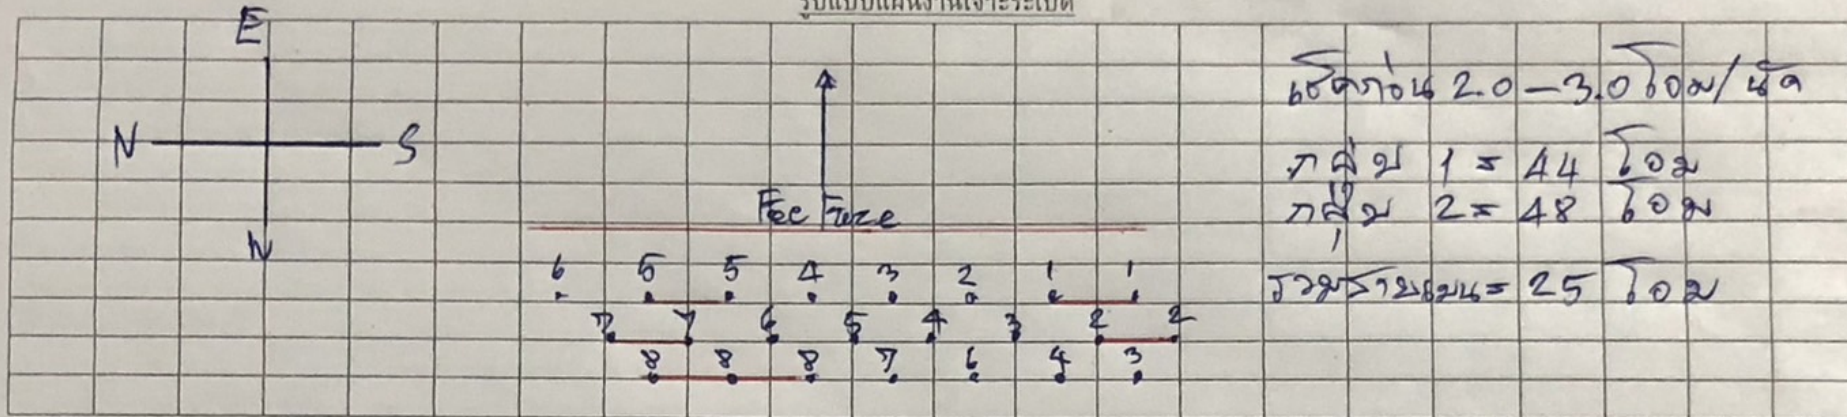 รูปแบบแผนงานเจาะระเบิด
E
N S
W
Fee Fraze
6 5 5 4 3 2 1 1
7 7 6 5 4 3 2 2
8 8 8 7 6 4 3
เช็คก่อน 2.0-3.0 โอม/นัด
กลุ่ม 1 = 44 โอม
กลุ่ม 2 = 48 โอม
รวมสายเมน = 25 โอม